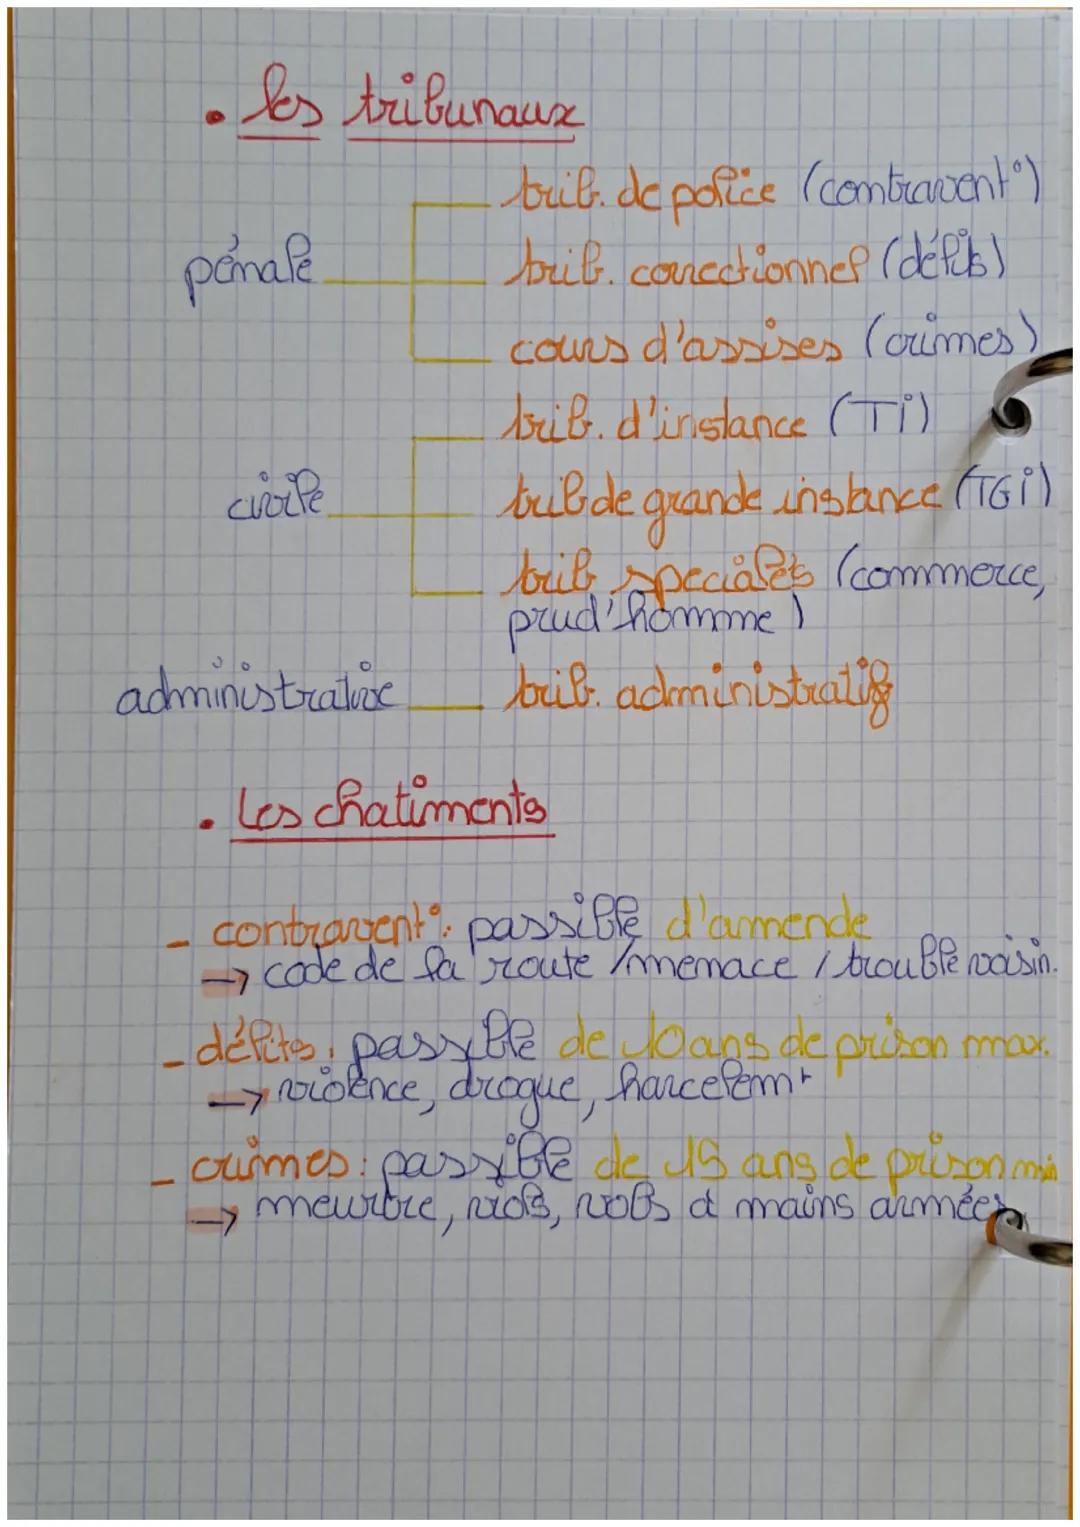 . les tribunaux
trib. de police (contravent°)
pénale trib. correctionnel (délits)
cours d'assises (crimes)
trib. d'instance (Ti)
civile trib de grande instance (TGi)
trib spécialés (commerce,
prud'homme)
administrative trib. administratif
. Les chatiments
- contravent°: passible d'amende
→ code de la route / menace / trouble voisin.
- délits: passible de 10 ans de prison max.
→ violence, drogue, harcelemt
- crimes: passible de 15 ans de prison min
→ meurtre, viols, vols à mains armées